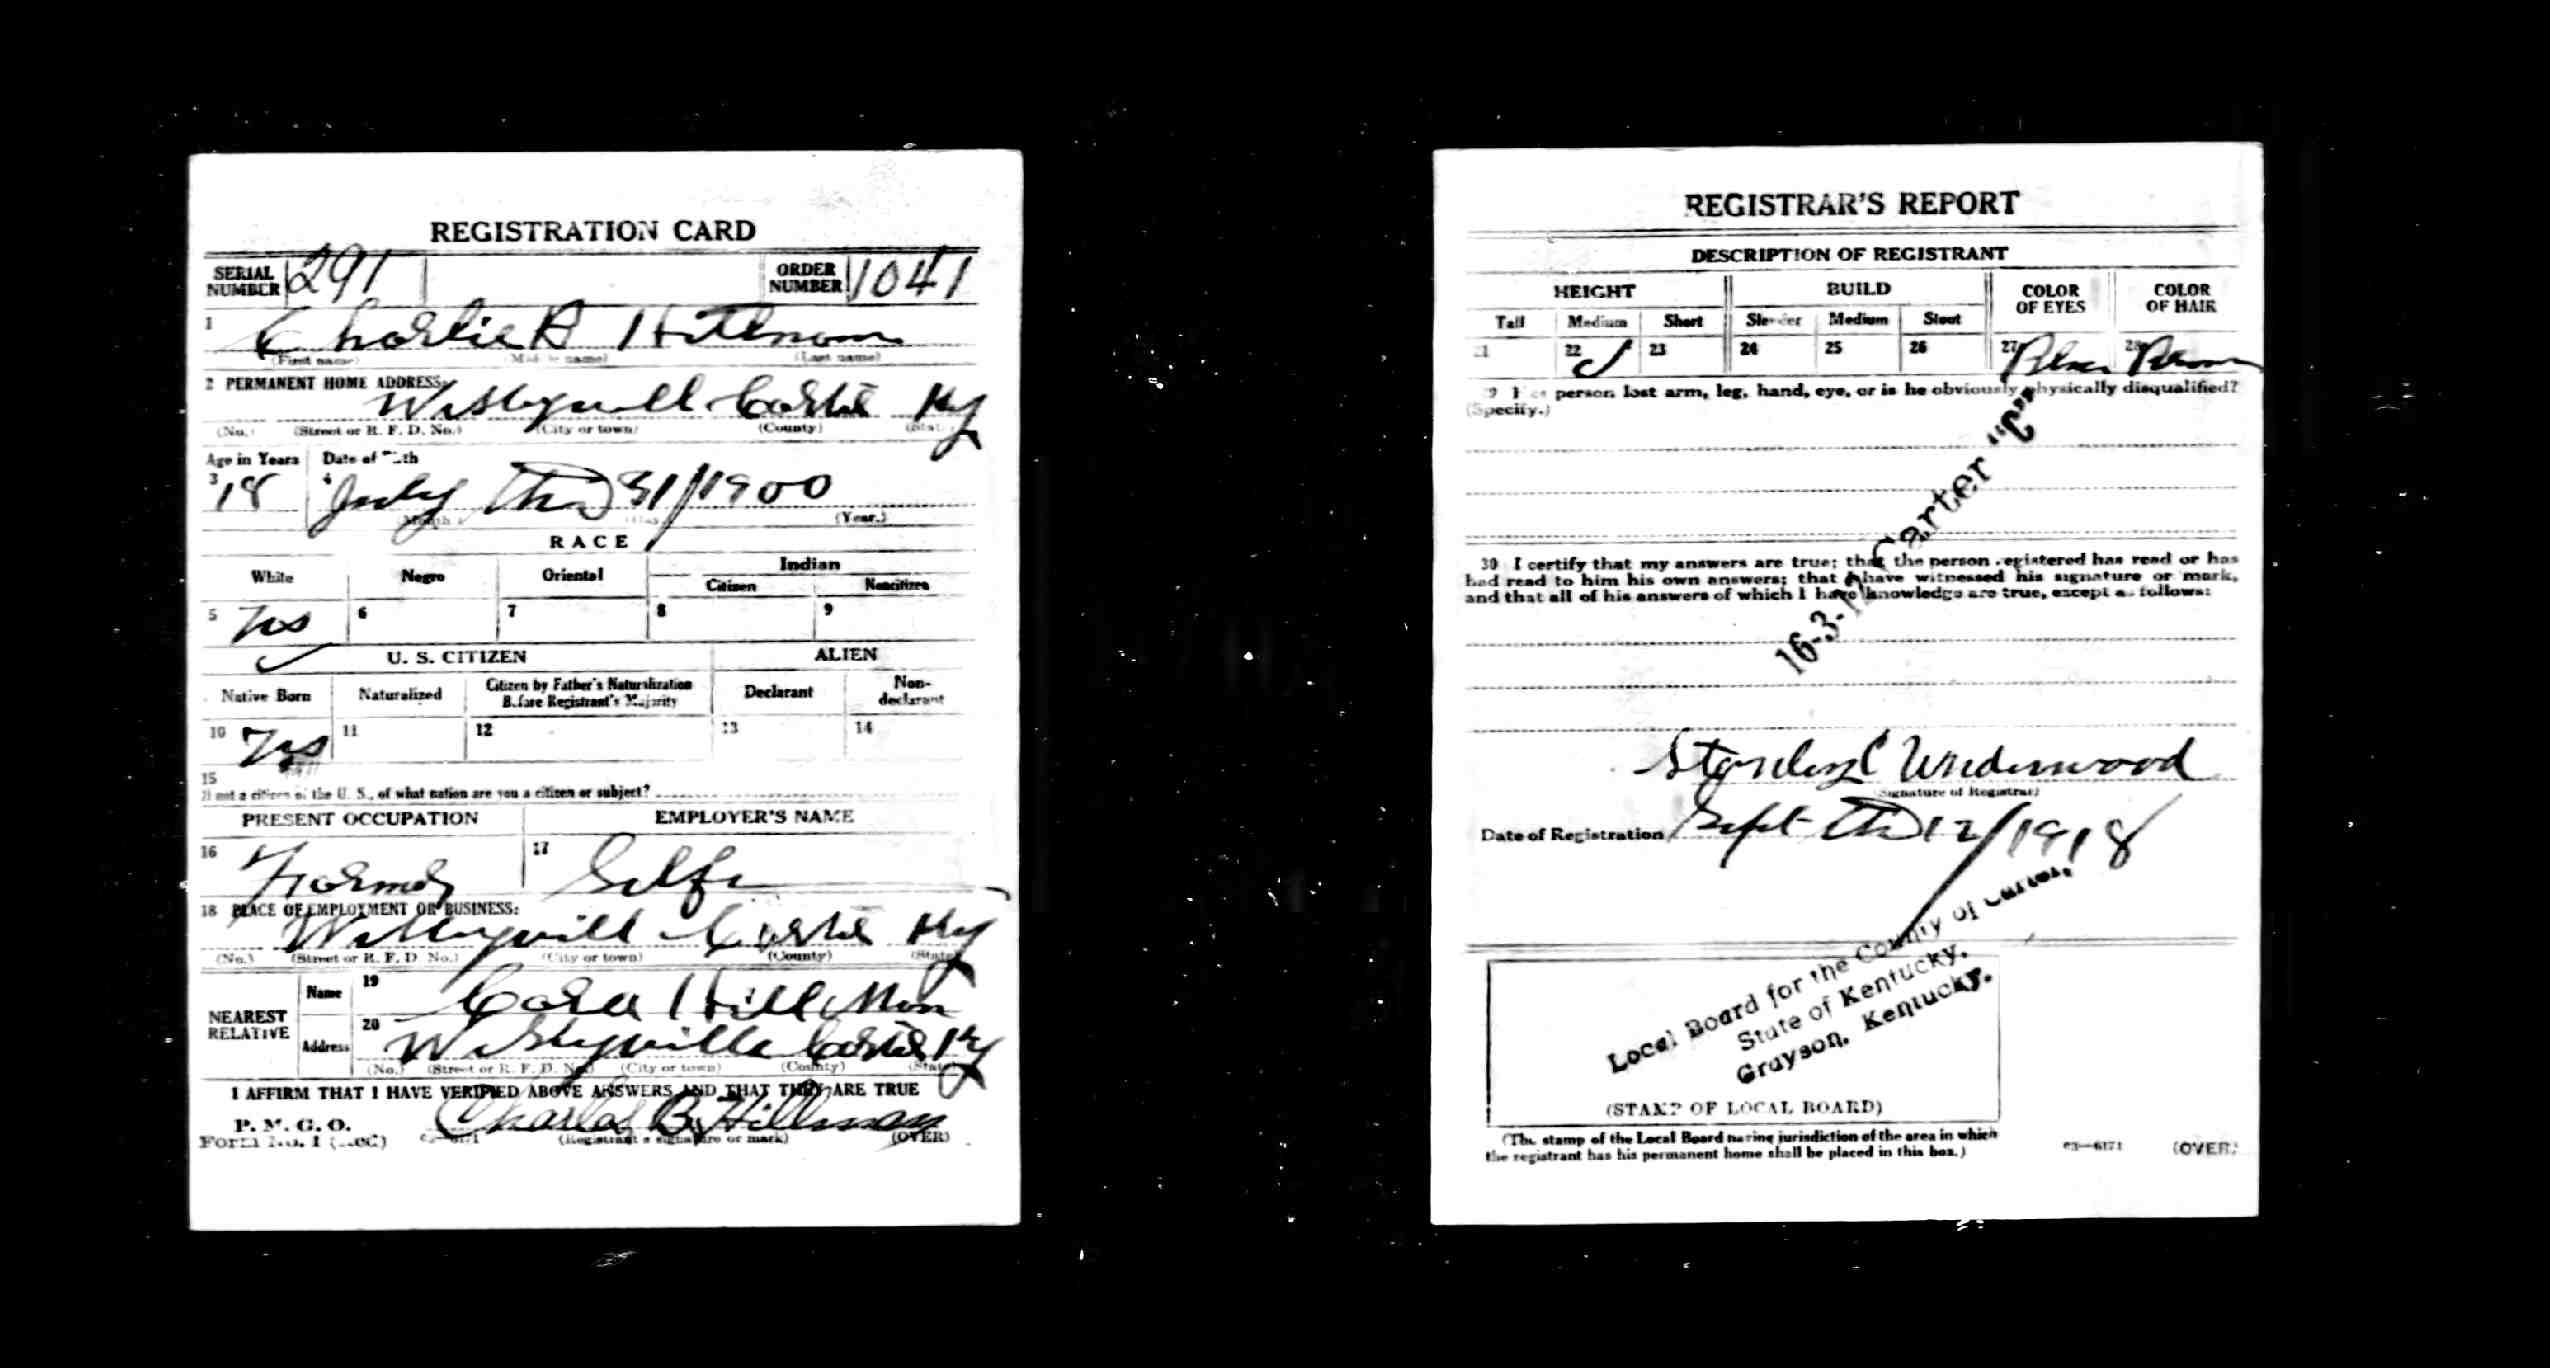 REGISTRATION CARD
SERIAL NUMBER 291 ORDER NUMBER 1041
1 Charlie B Hillman
(First name) (Middle name) (Last name)
2 PERMANENT HOME ADDRESS:
Carter Ky
(No.) (Street or R. F. D. No.) (City or town) (County) (State)
Age in Years Date of Birth
3 18 4 July The 31/1900
(Month) (Day) (Year.)
RACE
White Negro Oriental Indian
Citizen Noncitizen
5 Yes 6 7 8 9
U. S. CITIZEN ALIEN
Native Born Naturalized Citizen by Father's Naturalization Before Registrant's Majority Declarant Non-declarant
10 Yes 11 12 13 14
15
If not a citizen of the U. S., of what nation are you a citizen or subject?
PRESENT OCCUPATION EMPLOYER'S NAME
16 17 Self
18 PLACE OF EMPLOYMENT OR BUSINESS:
Carter Ky
(No.) (Street or R. F. D. No.) (City or town) (County) (State)
NEAREST RELATIVE
Name 19 Hillman
Address 20 Carter Ky
(No.) (Street or R. F. D. No.) (City or town) (County) (State)
I AFFIRM THAT I HAVE VERIFIED ABOVE ANSWERS AND THAT THEY ARE TRUE
P. M. G. O.
Form No. 1 (Red) 03—6171 Charles B. Hillman
(Registrant's signature or mark) (OVER)
REGISTRAR'S REPORT
DESCRIPTION OF REGISTRANT
HEIGHT BUILD COLOR OF EYES COLOR OF HAIR
Tall Medium Short Slender Medium Stout
21 22 ✓ 23 24 25 26 27 28
29 Has person lost arm, leg, hand, eye, or is he obviously physically disqualified?
(Specify.)
16-3- Carter "C"
30 I certify that my answers are true; that the person registered has read or has
had read to him his own answers; that I have witnessed his signature or mark,
and that all of his answers of which I have knowledge are true, except as follows:
Stanley C Underwood
(Signature of Registrar)
Date of Registration Sept The 12/1918
Local Board for the County of Carter,
State of Kentucky,
Grayson, Kentucky.
(STAMP OF LOCAL BOARD)
(The stamp of the Local Board having jurisdiction of the area in which
the registrant has his permanent home shall be placed in this box.)
03—6171 (OVER)